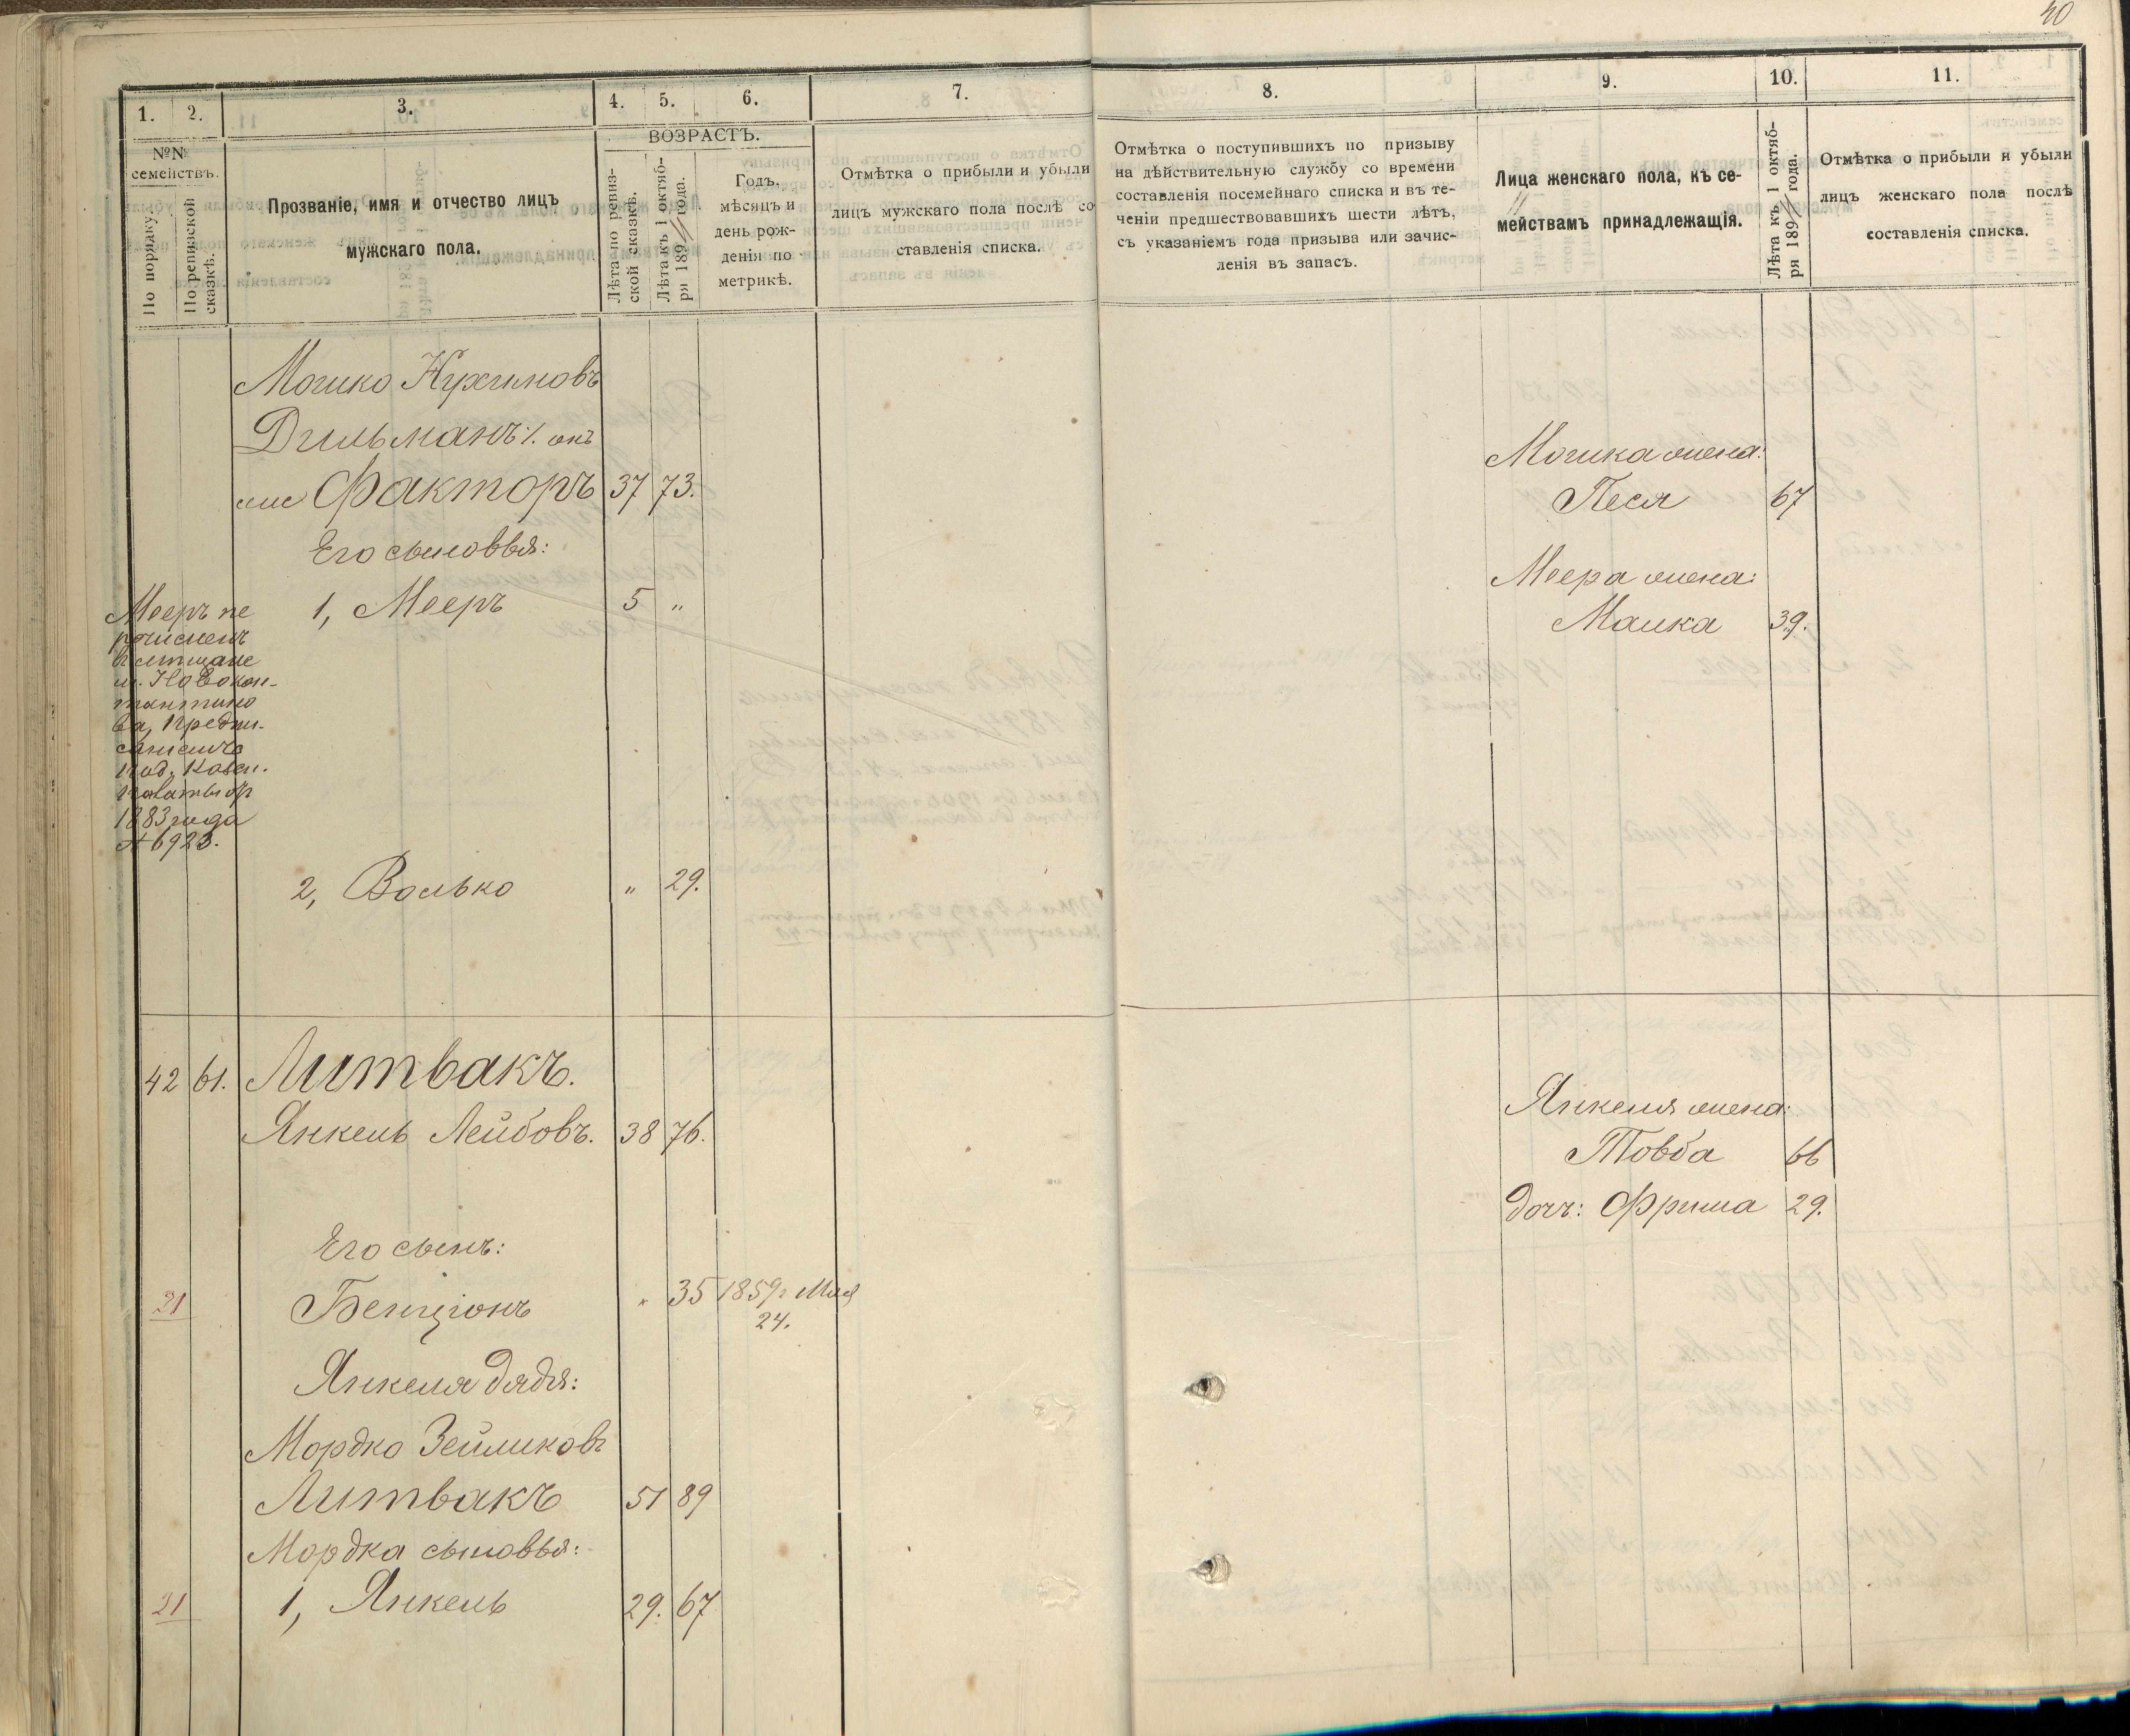 40
1. 2. 3. 4. 5. 6. 7.
ВОЗРАСТЪ.
№№
семействъ.
По порядку.
По ревизской
сказкѣ.
Прозваніе, имя и отчество лицъ
мужскаго пола.
Лѣта по ревиз-
ской сказкѣ.
Лѣта къ 1 октяб-
ря 189 года.
Годъ,
мѣсяцъ и
день рож-
денія по
метрикѣ.
Отмѣтка о прибыли и убыли
лицъ мужскаго пола послѣ со
ставленія списка.
Мошко Нухимовъ
Дильманъ онъ
же Факторъ 37 73.
Его сыновья:
1, Мееръ 5 „
Мееръ пе
речисленъ
въ мѣщане
м. Новокон-
стантино
ва, Предпи-
саніемъ
Под. Казен.
Палаты
1883 года
№ 6923.
2, Волько „ 29.
42 61. Литвакъ.
Янкель Лейбовъ. 38 76.
Его сынъ:
21 Бенціонъ „ 35 1859 г Мая
24.
Янкеля дядя:
Мордко Зейликовъ
Литвакъ 51 89
Мордка сыновья:
21 1, Янкель 29. 67
8. 9. 10. 11.
Отмѣтка о поступившихъ по призыву
на дѣйствительную службу со времени
составленія посемейнаго списка и въ те-
ченіи предшествовавшихъ шести лѣтъ,
съ указаніемъ года призыва или зачис-
ленія въ запасъ.
Лица женскаго пола, къ се-
мействамъ принадлежащія.
Лѣта къ 1 октяб-
ря 189 года.
Отмѣтка о прибыли и убыли
лицъ женскаго пола послѣ
составленія списка.
Мошка жена:
Песя 67
Меера жена:
Малка 39.
Янкеля жена:
Товба 66
доч: Фрима 29.